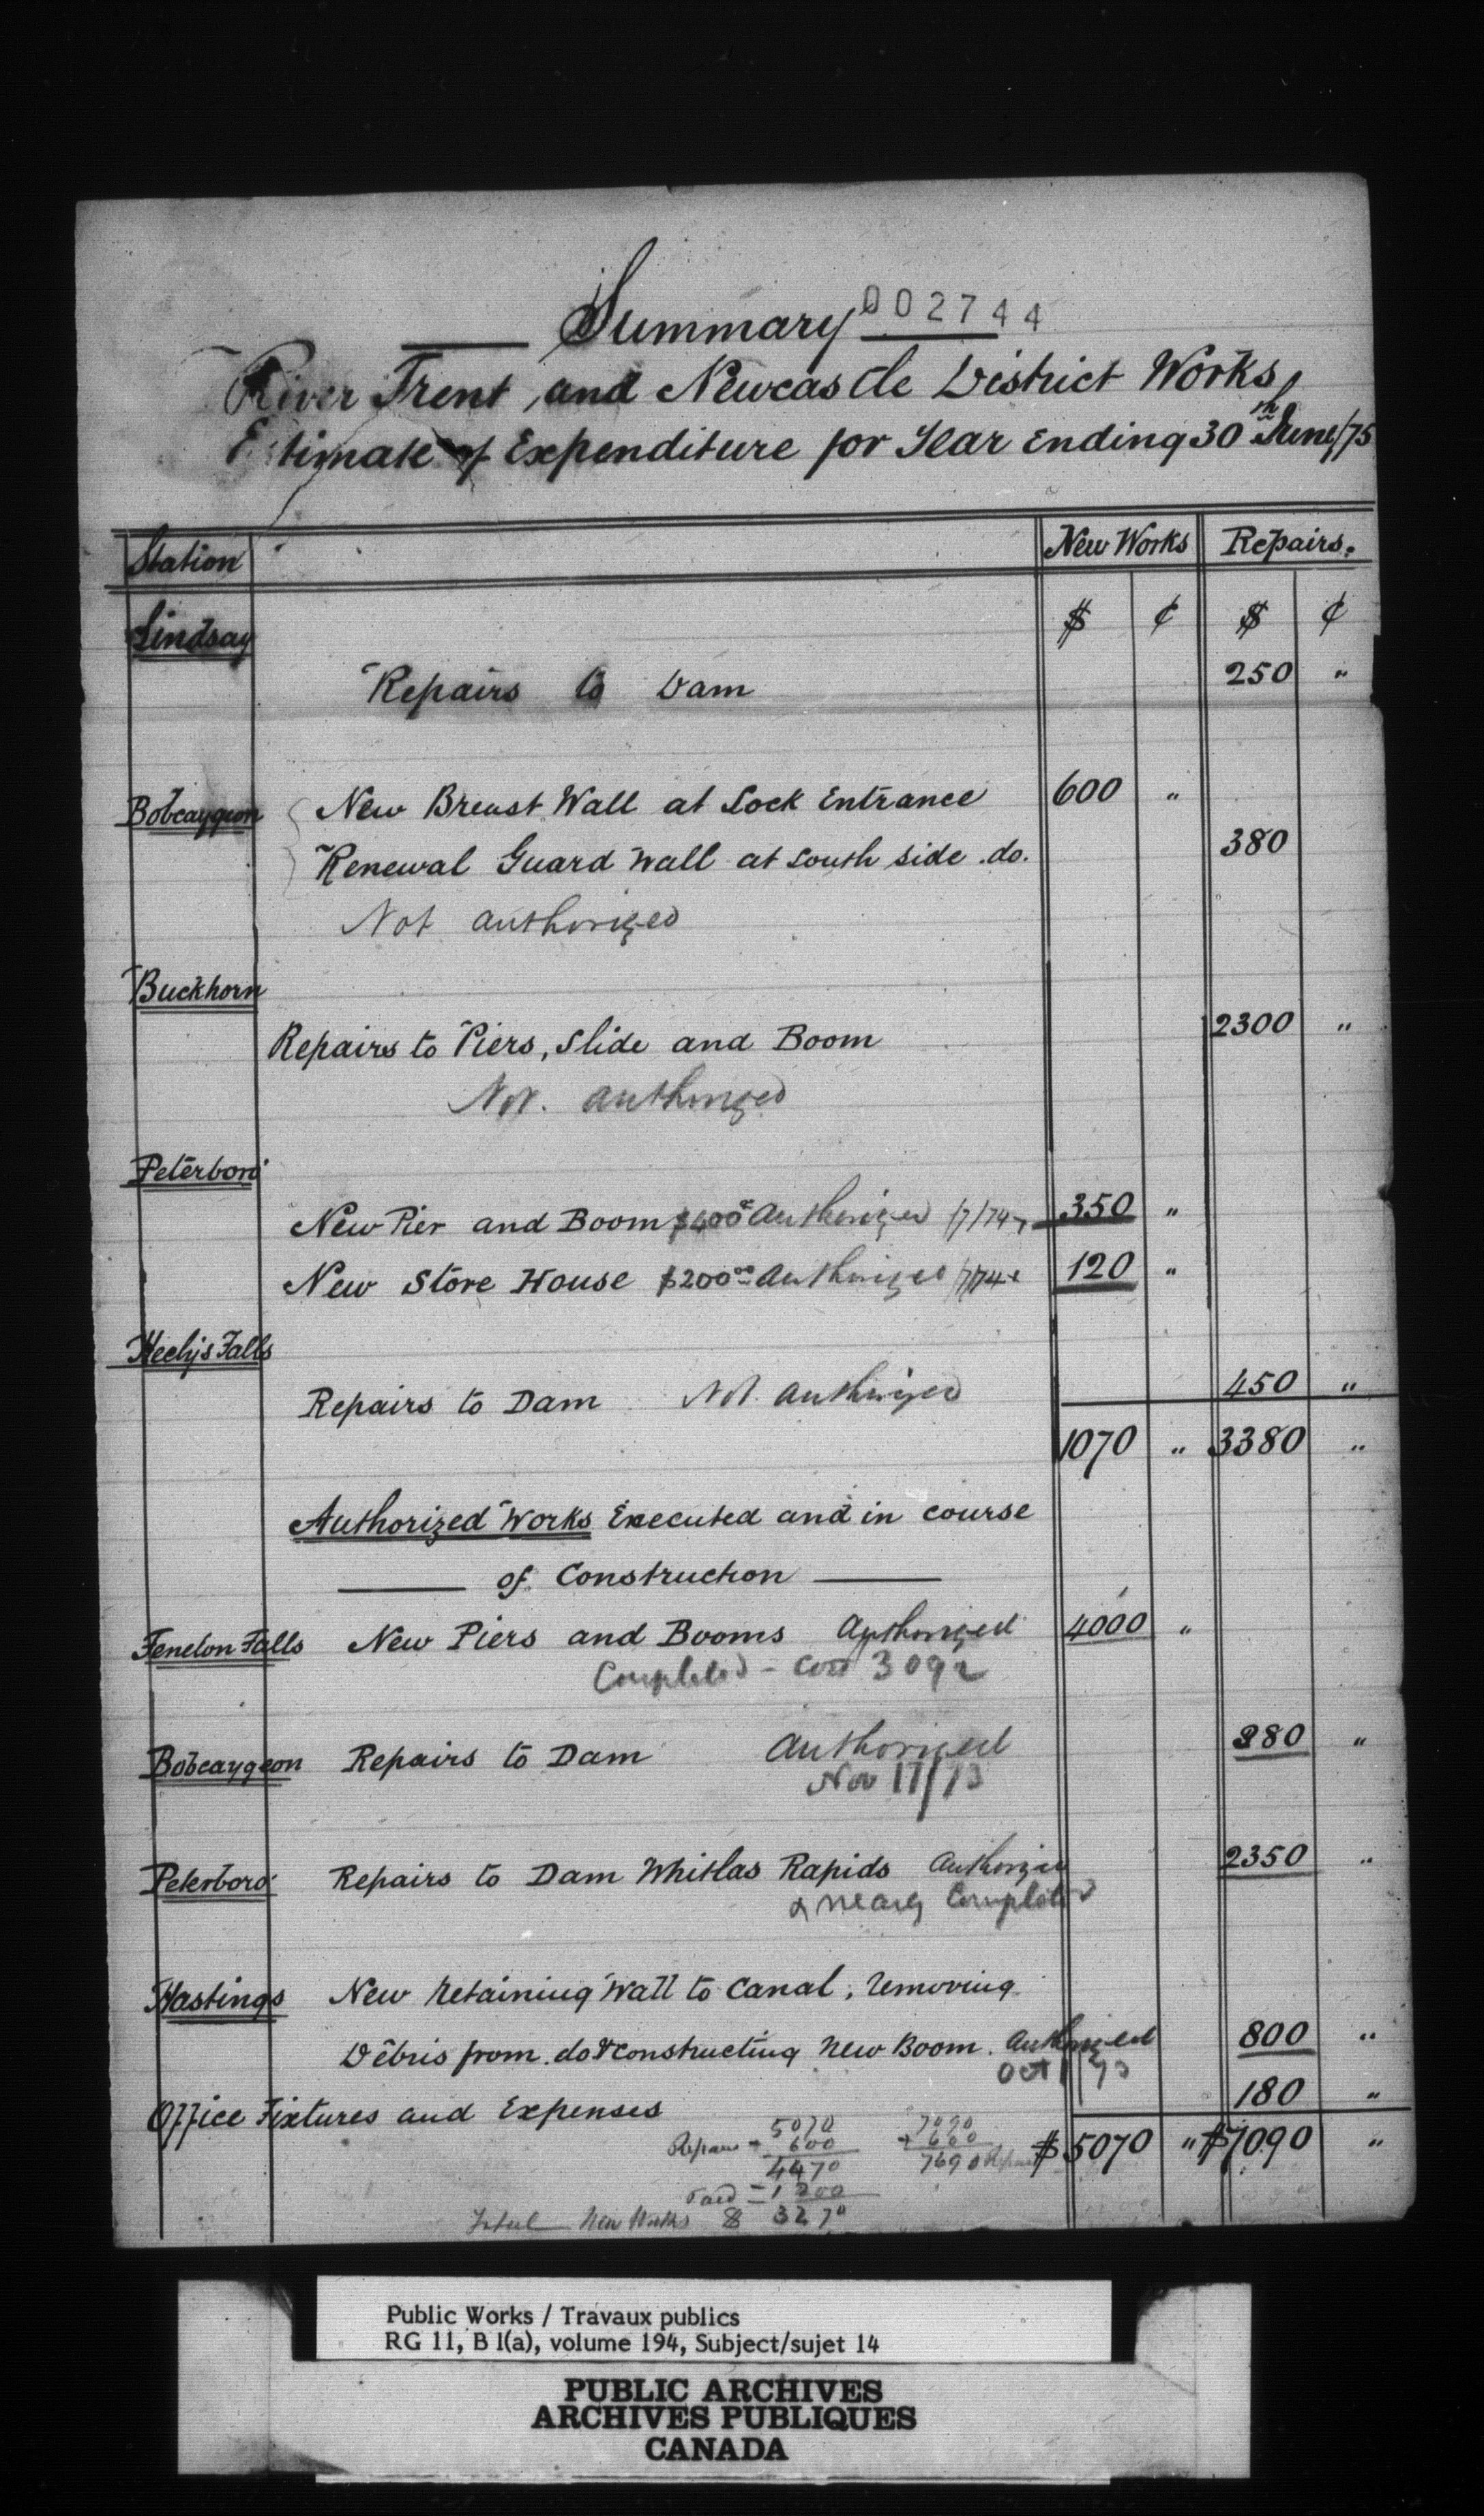 Summary 002744
River Trent, and Newcastle District Works
Estimate of Expenditure for Year Ending 30th June/75
Station New Works Repairs.
$ ¢ $ ¢
Lindsay
Repairs to Dam 250 "
Bobcaygeon New Breast Wall at Lock Entrance 600 "
Renewal Guard Wall at South side .do. 380
Not authorized
Buckhorn
Repairs to Piers, Slide and Boom 2300 "
Not. authorized
Peterboro'
New Pier and Boom $400 Authorized /7/74 350 "
New Store House $200.00 Authorized /7/74 120 "
Heely's Falls
Repairs to Dam Not authorized 450 "
1070 " 3380 "
Authorized Works Executed and in course
of Construction
Fenelon Falls New Piers and Booms Authorized 4000 "
Completed - Cost 3092
Bobcaygeon Repairs to Dam Authorized 380 "
Nov 17/73
Peterboro' Repairs to Dam Whitlas Rapids Authorized 2350 "
& nearly Completed
Hastings New Retaining Wall to Canal, removing
Débris from .do & constructing New Boom. Authorized 800 "
Oct 73
Office Fixtures and Expenses 180 "
5070 7090
Repairs - 600 + 600 $5070 " $7090 "
4470 7690 Repairs
1200
Total New Works $ 3270
Public Works / Travaux publics
RG 11, B 1(a), volume 194, Subject/sujet 14
PUBLIC ARCHIVES
ARCHIVES PUBLIQUES
CANADA